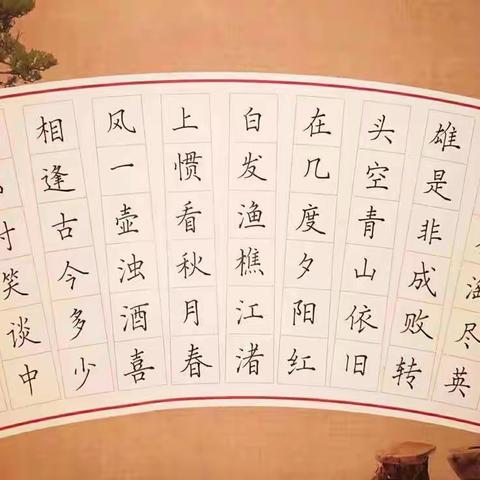 淘尽英
雄是非成败转
头空青山依旧
在几度夕阳红
白发渔樵江渚
上惯看秋月春
风一壶浊酒喜
相逢古今多少
付笑谈中